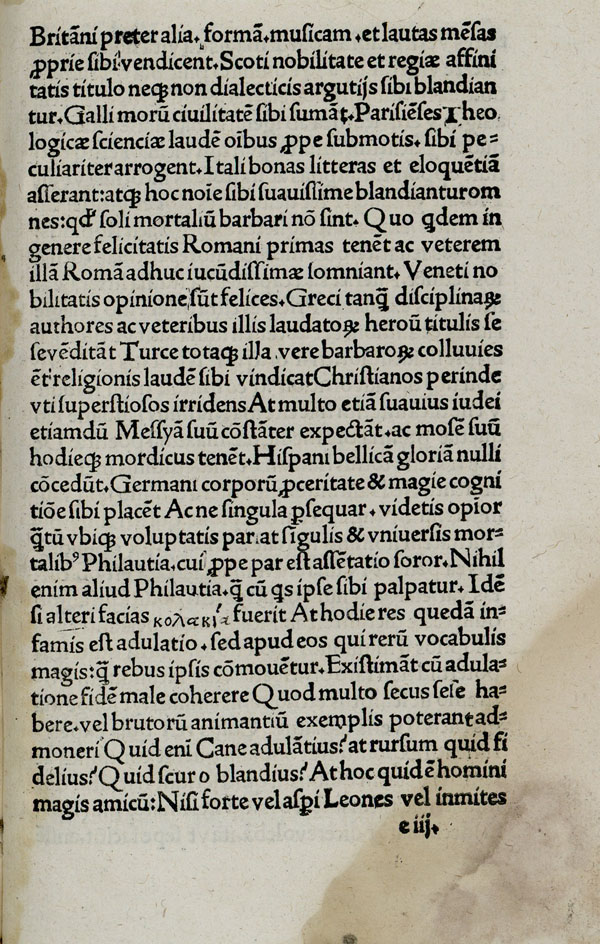 Britãni preter alia. formã.musicam .et lautas mẽsas
ꝓprie sibi vendicent.Scoti nobilitate et regiæ affini
tatis titulo neqꝫ non dialecticis argutijs sibi blandian
tur.Galli morũ ciuilitatẽ sibi sumãt.Parisiẽses Theo
logicæ scienciæ laudẽ oĩbus ꝓpe submotis. sibi pe⸗
culiariter arrogent.Itali bonas litteras et eloquẽtiã
asserant:atqꝫ hoc noĩe sibi suauissime blandiantur om
nes:qđ soli mortaliũ barbari nõ sint. Quo qdem in
genere felicitatis Romani primas tenẽt ac veterem
illã Romã adhuc iucũdissimæ somniant. Veneti no
bilitatis opinione sũt felices.Greci tanq̃ disciplinaꝝ
authores ac veteribus illis laudatoꝝ heroũ titulis se
se vẽditãt Turce totaqꝫ illa .vere barbaroꝝ colluuies
ẽt religionis laudẽ sibi vindicat Christianos perinde
vti superstiosos irridens At multo etiã suauius iudei
etiamdũ Messyã suũ cõstãter expectãt.ac mosẽ suũ
hodieqꝫ mordicus tenẽt.Hispani bellicã gloriã nulli
cõcedũt.Germani corporũ ꝓceritate & magie cogni
tiõe sibi placẽt Ac ne singula ꝑsequar. videtis opior
q̃tũ vbiqꝫ voluptatis pariat sĩgulis & vniuersis mor⸗
talibꝰ Philautia.cui ꝓpe par est assẽtatio soror.Nihil
enim aliud Philautia.q̃ cũ qs ipse sibi palpatur. Idẽ
si alteri facias κολακία fuerit At hodie res quedã in⸗
famis est adulatio.sed apud eos qui rerũ vocabulis
magis:q̃ rebus ipsis cõmouẽtur.Existimãt cũ adula⸗
tione fidẽ male coherere Quod multo secus sese ha⸗
bere.vel brutorũ animantiũ exemplis poterant ad⸗
moneri Quid eni Cane adulãtius? at rursum quid fi
delius? Quid scuro blandius? At hoc quid ẽ homini
magis amicũ:Nisi forte vel asꝑi Leones vel inmites
e iij.